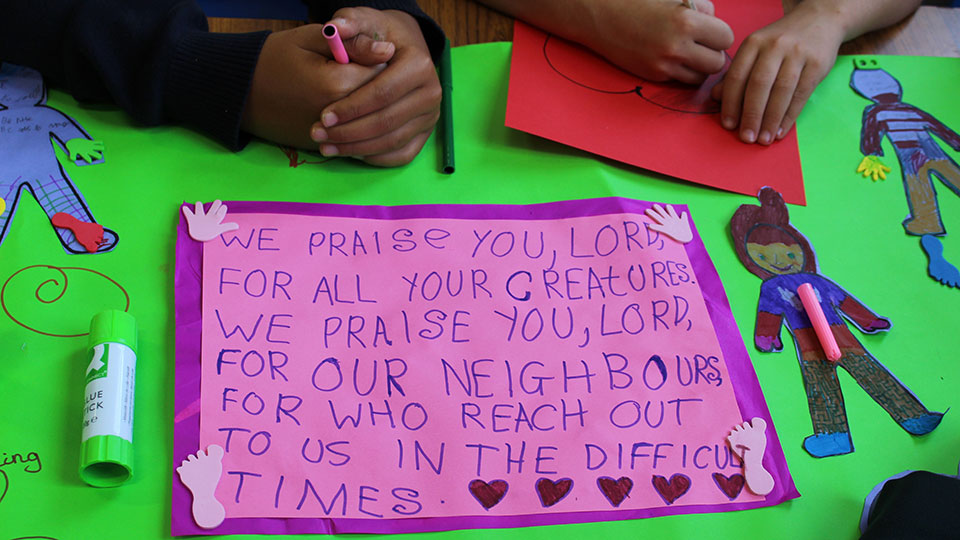 WE PRAISE YOU, LORD,
FOR ALL YOUR CREATURES.
WE PRAISE YOU, LORD,
FOR OUR NEIGHBOURS,
FOR WHO REACH OUT
TO US IN THE DIFFICULT
TIMES.
STICK